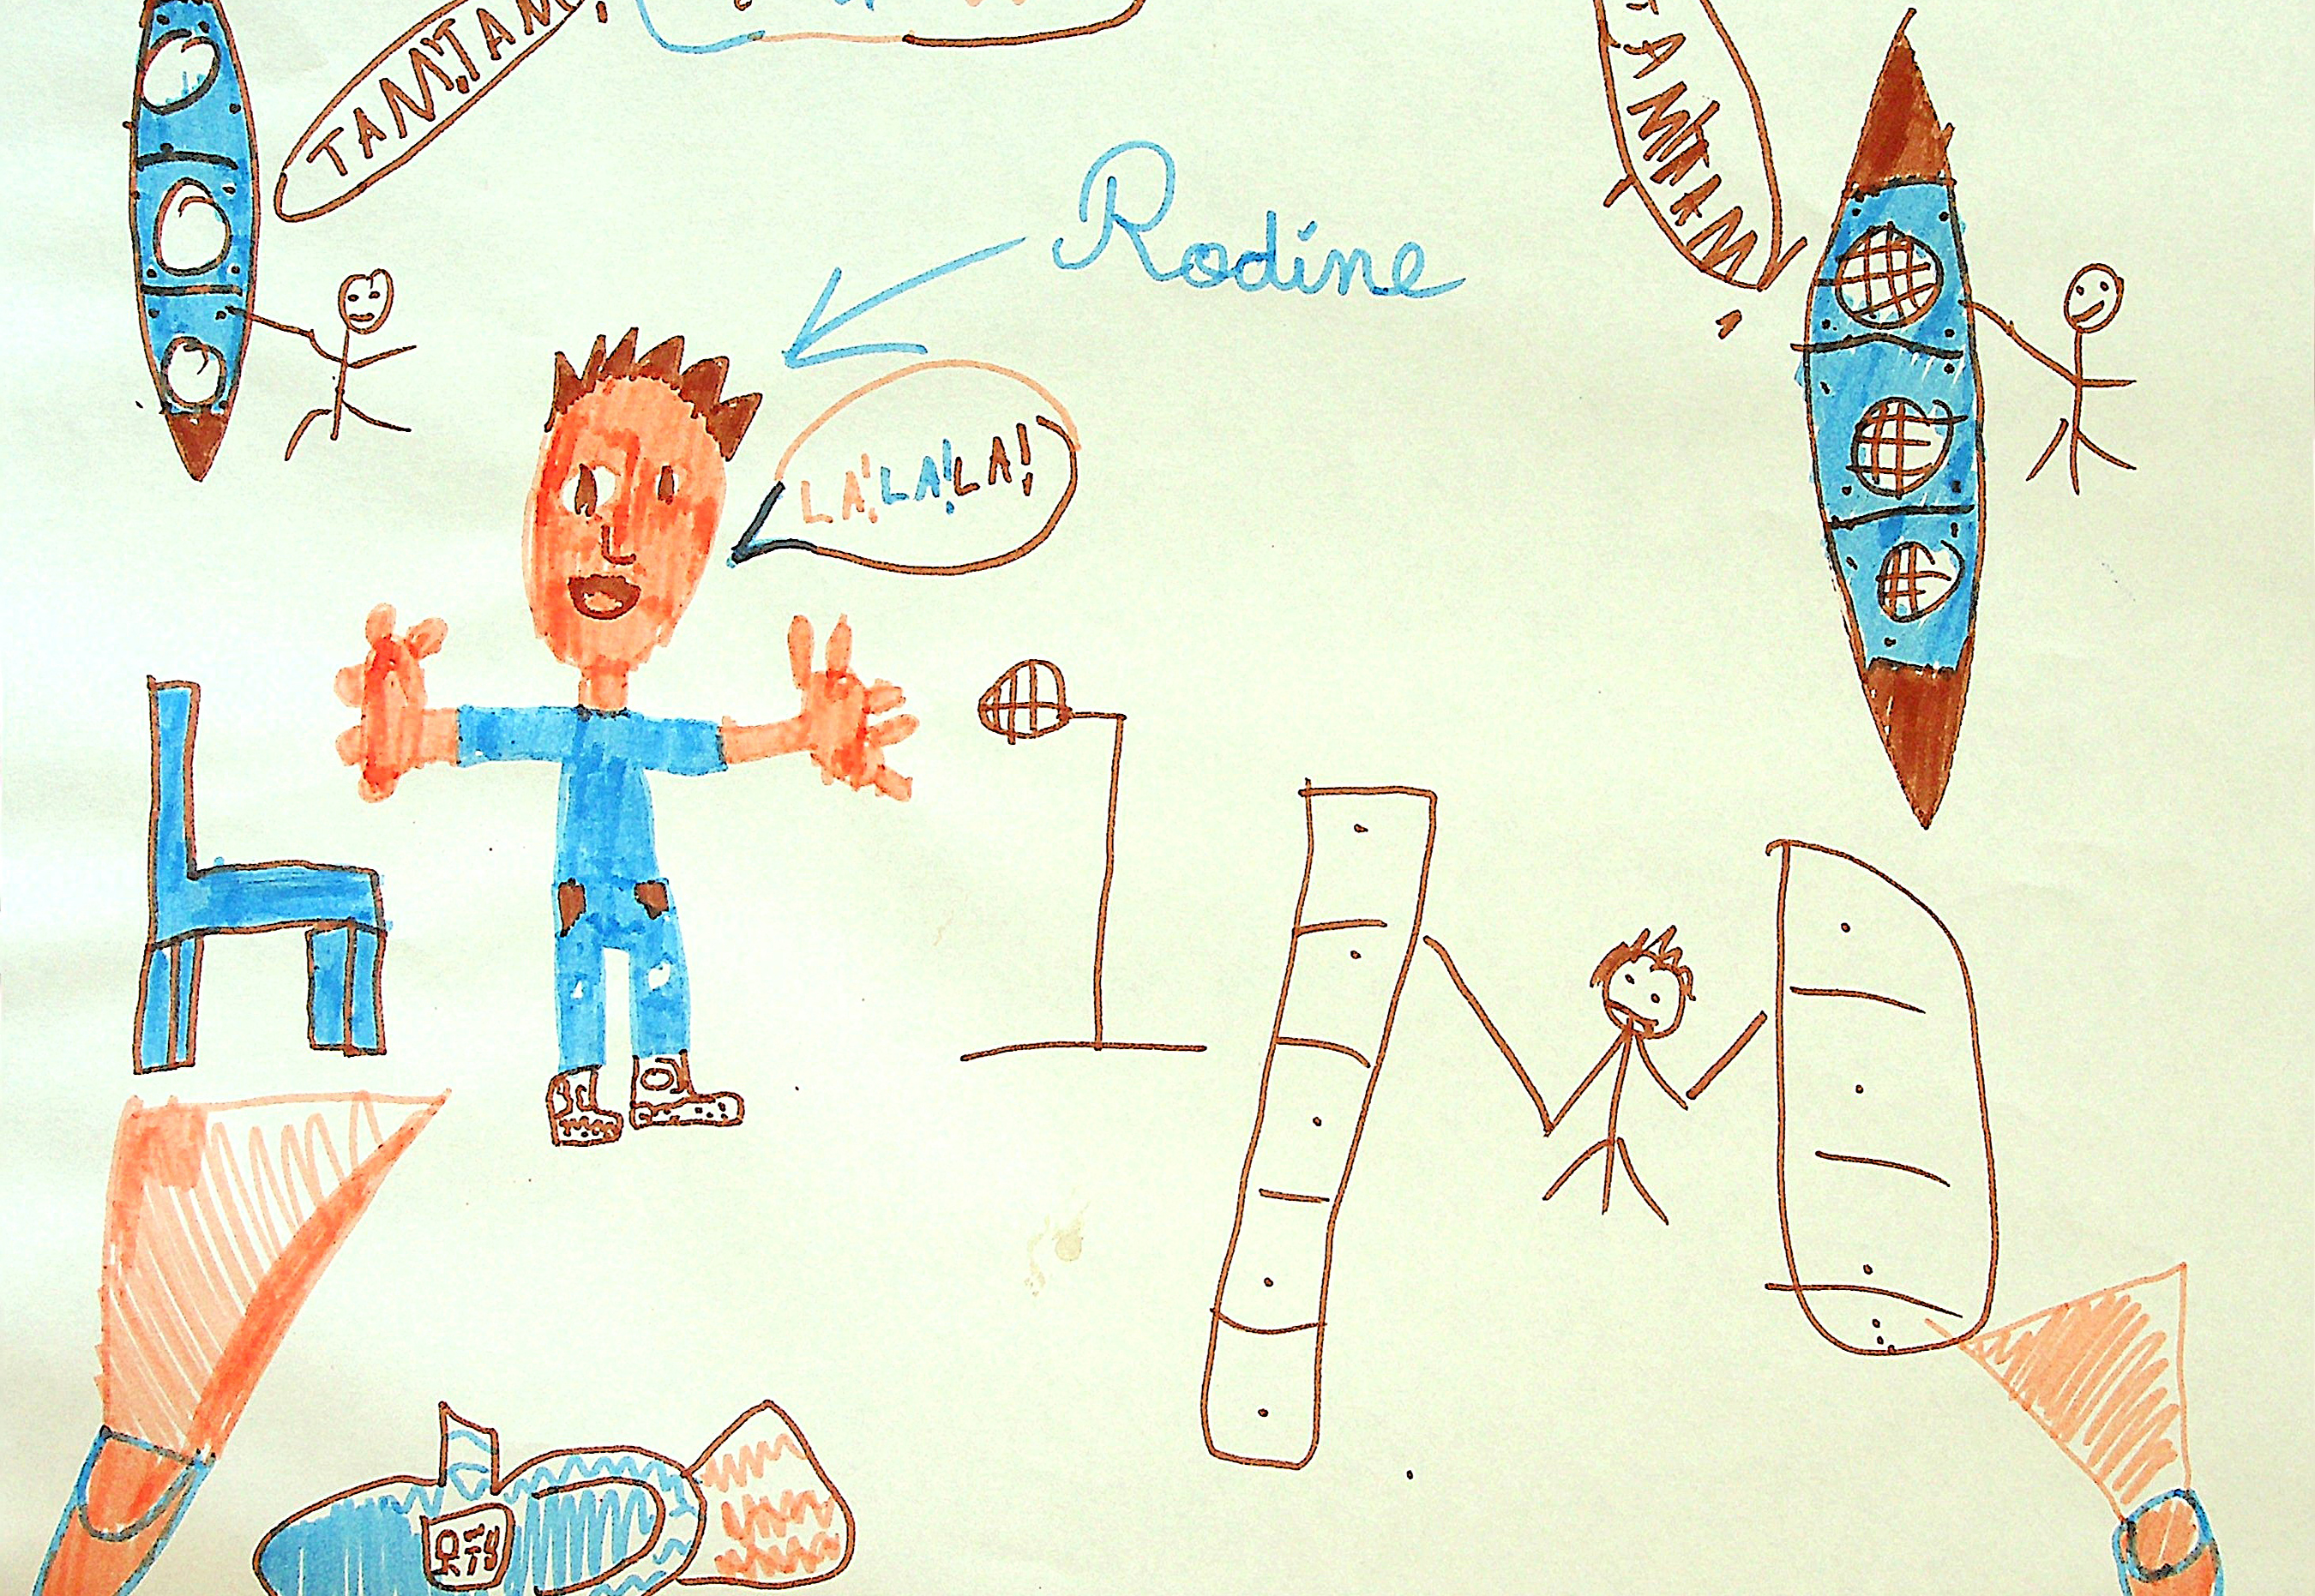 TAM!TAM
TAM!TAM!
Rodine
LA!LA!LA!